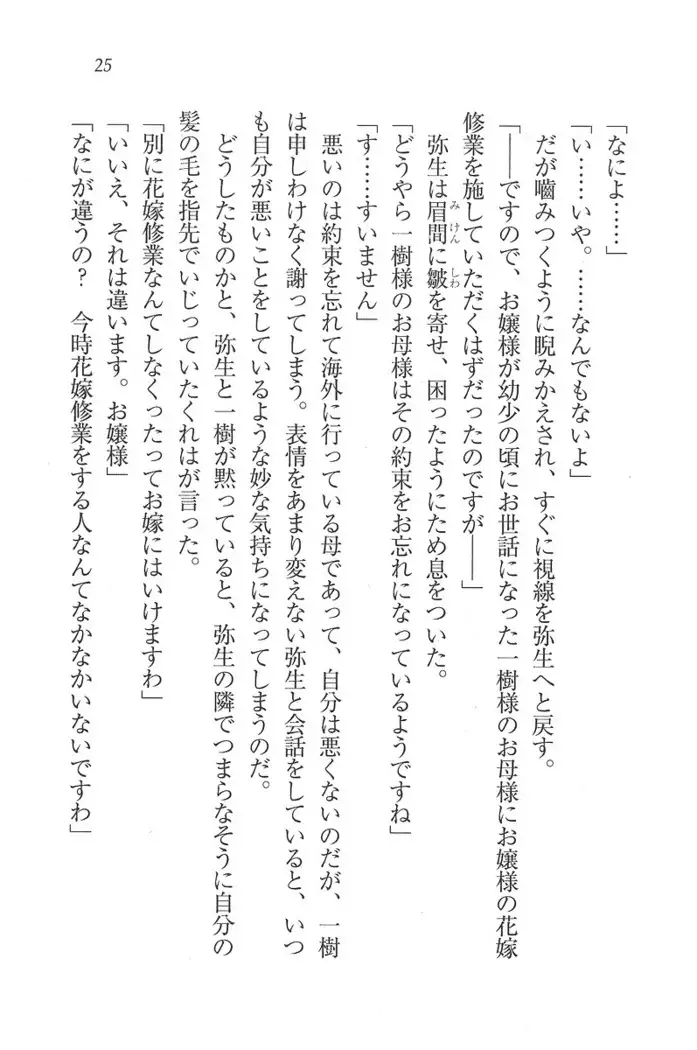 25
「なによ……」
「い……いや。……なんでもないよ」
だが噛みつくように睨みかえされ、すぐに視線を弥生へと戻す。
「――ですので、お嬢様が幼少の頃にお世話になった一樹様のお母様にお嬢様の花嫁
修業を施していただくはずだったのですが――」
弥生は眉間に皺を寄せ、困ったようにため息をついた。
みけん
しわ
「どうやら一樹様のお母様はその約束をお忘れになっているようですね」
「す……すいません」
悪いのは約束を忘れて海外に行っている母であって、自分は悪くないのだが、一樹
は申しわけなく謝ってしまう。表情をあまり変えない弥生と会話をしていると、いつ
も自分が悪いことをしているような妙な気持ちになってしまうのだ。
どうしたものかと、弥生と一樹が黙っていると、弥生の隣でつまらなそうに自分の
髪の毛を指先でいじっていたくれはが言った。
「別に花嫁修業なんてしなくったってお嫁にはいけますわ」
「いいえ、それは違います。お嬢様」
「なにが違うの？　今時花嫁修業をする人なんてなかなかいないですわ」